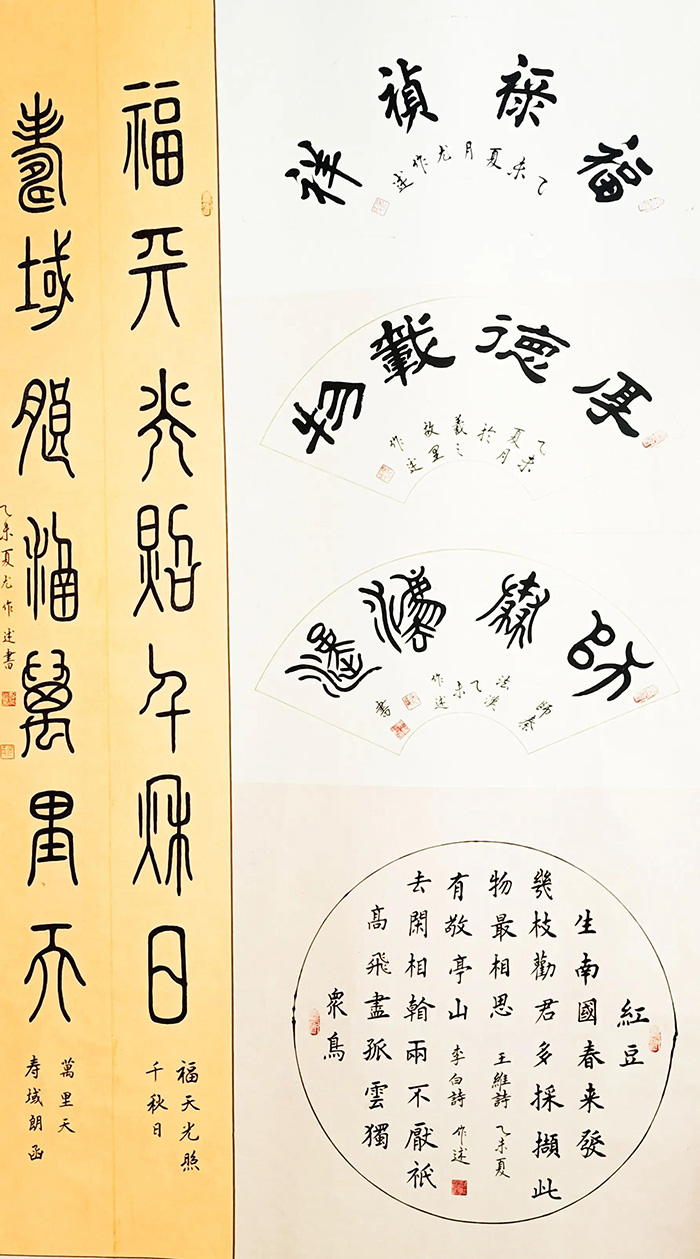 福天光照千秋日
壽域朗涵萬里天
乙未夏尤作述書
福天光照
千秋日
萬里天
寿域朗函
福祿禎祥
乙未夏月尤作述
厚德載物
乙未
夏月
於
羲之
故里
作述
師秦
法漢
乙未
作述
書
紅豆
生南國春来發
幾枝勸君多採擷此
物最相思 王維詩 乙未夏
眾鳥
高飛盡孤雲獨
去閑相看兩不厭祇
有敬亭山 李白詩 作述